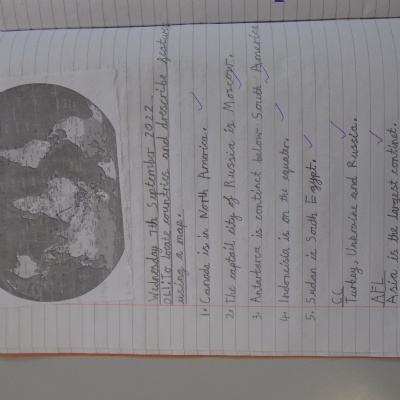 Wednesday 7th September 2022
OLI: To locate countries and drescribe
using a map.
1. Canada is in North America.
2. The captail city of Russia is Moscow.
3. Antartarca is continet below South America
4. Indoneisia is on the equator.
5. Sudan is South Egypt.
CL
Turkey, Unkraine and Russia.
AFL
Asia is the largest continet.